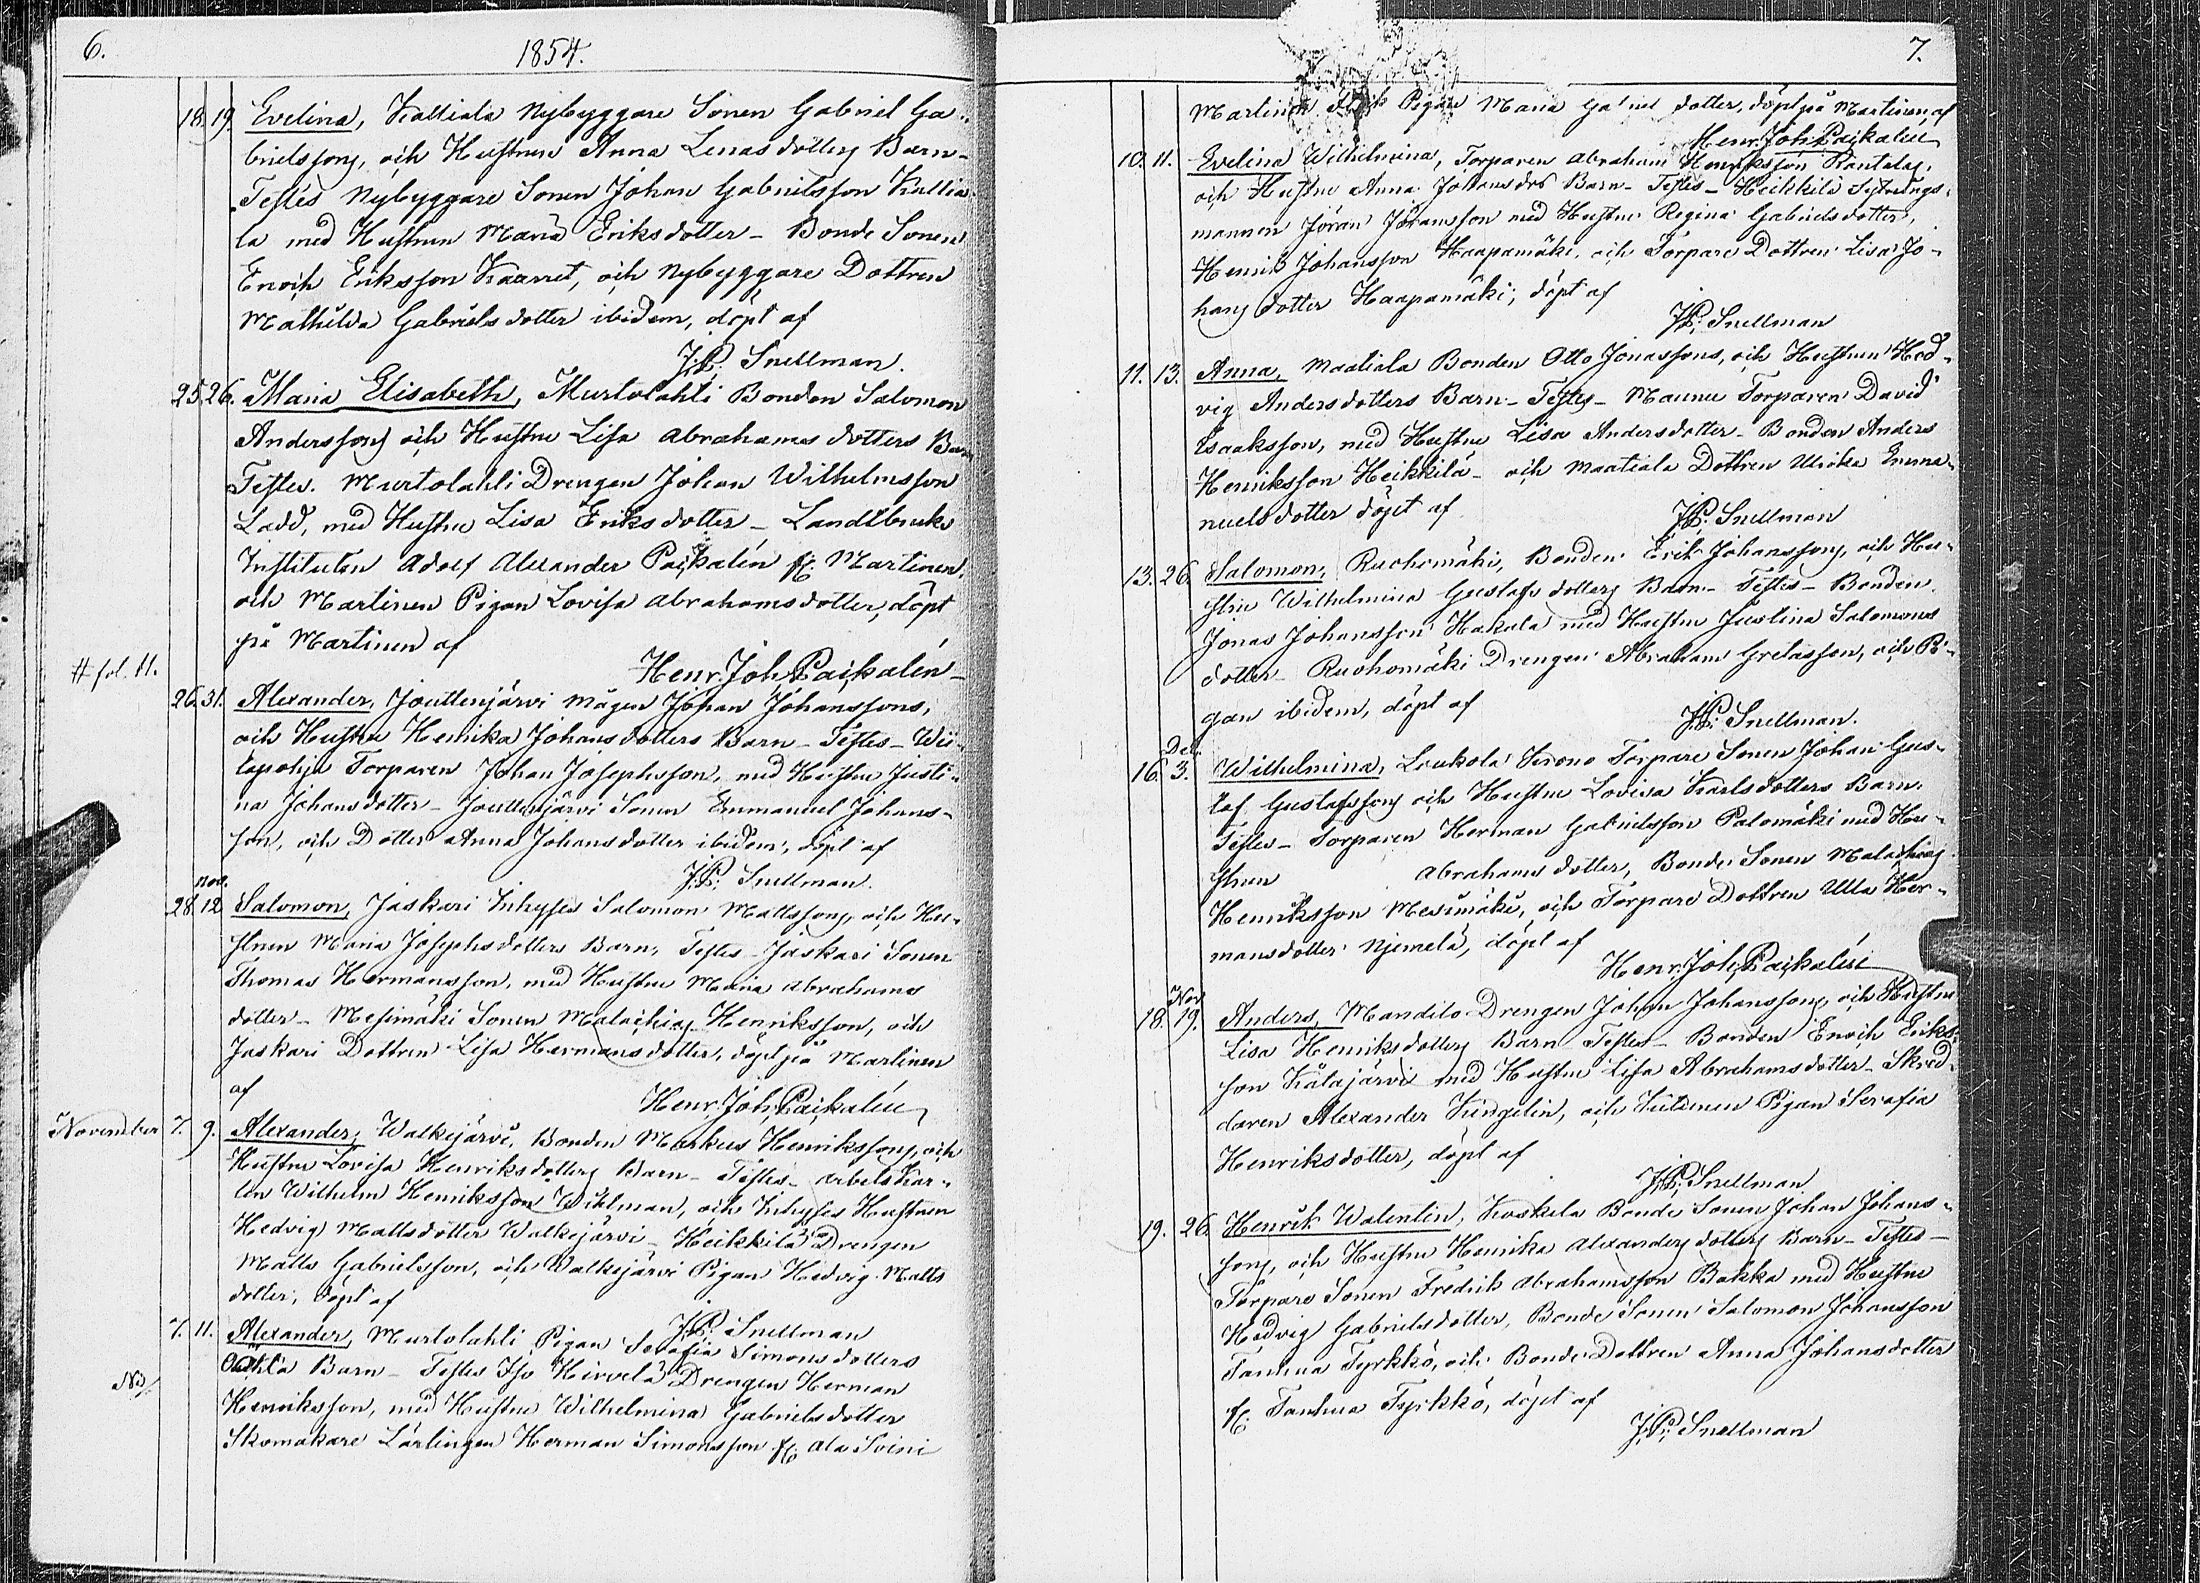 6.
1854.
18. 19. Evelina, Kattiala Nybyggare Sonen Gabriel Ga-
brielssons, och Hustrun Anna Lenas dotters Barn-
Testes Nybyggare Sonen Johan Gabrielsson Kattia-
la med Hustrun Maria Eriksdotter - Bonde Sonen
Enoch Eriksson Kaarret, och Nybyggare Dottren
Mathilda Gabriels dotter ibidem, döpt af
J.P. Snellman.
25. 26. Maria Elisabeth, Murtolahti Bonden Salomon
Anderssons och Hustru Lisa Abrahams dotters Barn
Testes. Murtolahti Drengen Johan Wilhelmsson
Ladd, med Hustru Lisa Eriksdotter - Landtbruks
Institutsn Adolf Alexander Pajkalén fr. Martinen,
och Martinen Pigan Lovisa Abrahamsdotter, döpt
på Martinen af
Henr. Joh. Pajkalén
# fol. 11.
26. 31. Alexander, Jouttenjärvi Mågen Johan Johanssons,
och Hustru Henrika Johansdotters Barn - Testes - Wii-
tapohja Torparen Johan Josephsson, med Hustru Justi-
na Johansdotter - Jouttenjärvi Sonen Emmanuel Johans-
son, och Dotter Anna Johansdotter ibidem, döpt af
J.P. Snellman.
Nov.
28. 12 Salomon, Jaskari Inhyses Salomon Mattssons, och Hu-
strun Maria Josephsdotters Barn, Testes - Jaskari Sonen
Thomas Hermansson, med Hustru Maria Abrahams
dotter - Mesimäki Sonen Malachias Henriksson, och
Jaskari Dottren Lisa Hermansdotter, döpt på Martinen
af
Henr. Joh. Pajkalén
November 7. 9. Alexander, Walkejärvi, Bonden Markus Henrikssons, och
Hustru Lovisa Henriksdotters Barn - Testes - Arbetskar-
len Wilhelm Henriksson Wihlman, och Inhyses Hustrun
Hedvig Mattsdotter Walkejärvi - Heikkilä Drengen
Matts Gabrielsson, och Walkejärvi Pigan Hedvig Matts
dotter, döpt af
J.P. Snellman
7. 11. Alexander, Murtolahti Pigan Serafia Simonsdotters
Oäkta Barn - Testes Iso Hirvelä Drengen Herman
Henriksson, med Hustru Wilhelmina Gabrielsdotter
Skomakare Lärlingen Herman Simonsson fr. Ala Soini
7.
Martinen Pigan Maria Gabriel dotter, döpt på Martinen, af
Henr. Joh. Pajkalén
10. 11. Evelina Wilhelmina, Torparen Abraham Henriksson Rantalas,
och Hustru Anna Johansdrs Barn - Testes - Heikkilä Sytnings-
mannen Jöran Jöransson med Hustru Regina Gabrielsdotter,
Henrik Johansson Haapamäki, och Torpare Dottren Lisa Jo-
hans dotter Haapamäki, döpt af
J.P. Snellman
11. 13. Anna, Maatiala Bonden Otto Jonassons, och Hustrun Hed-
vig Andersdotters Barn - Testes - Maunu Torparen David
Isaaksson, med Hustru Lisa Andersdotter - Bonden Anders
Henriksson Heikkilä - och Maatiala Dottren Ulrika Emma-
nuelsdotter döpt af
J.P. Snellman
13. 26. Salomon, Ruohomäki, Bonden Erik Johanssons, och Hu-
stru Wilhelmina Gustafs dotters Barn - Testes - Bonden
Jonas Johansson Hakala med Hustru Justina Salomons
dotter - Ruohomäki Drengen Abraham Gretasson, och Pi-
gan ibidem, döpt af
J.P. Snellman.
Dec.
16. 3. Wilhelmina, Loukola Krono Torpare Sonen Johan Gus-
taf Gustafssons och Hustru Lovisa Karlsdotters Barn.
Testes - Torparen Herman Gabrielsson Palomäki med Hu-
strun Abrahams dotter, Bonde Sonen Malachias
Henriksson Mesimäki, och Torpare Dottren Ulla Her-
mansdotter Njemelä, döpt af
Henr. Joh. Pajkalén
Nov.
18. 19. Anders, Mandilo Drengen Johan Johanssons och Hustru
Lisa Henriksdotters Barn Testes - Bonden Enoch Eriks-
son Kätajärvi med Hustru Lisa Abrahamsdotter - Skräd-
daren Alexander Kingelin, och Pigan Serafia
Henriksdotter, döpt af
J.P. Snellman
19. 26. Henrik Walentin, Koskela Bonde Sonen Johan Johans-
sons, och Hustru Henrika Alexanders dotters Barn - Testes -
Torpare Sonen Fredrik Abrahamsson Bakka med Hustru
Hedvig Gabrielsdotter, Bonde Sonen Salomon Johansson
Tanhua Tyrkkö, och Bonde Dottren Anna Johansdotter
fr. Tanhua Tyrkkö, döpt af
J.P. Snellman